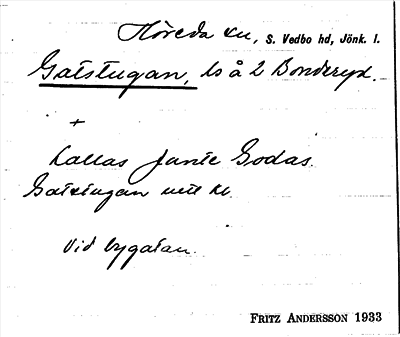 Höreda sn, S. Vedbo hd, Jönk. l.
Gatstugan, ls å 2 Bonderyd.
+
Kallas Jante Godas.
Gatstugan utt kl.
Vid bygatan.
FRITZ ANDERSSON 1933